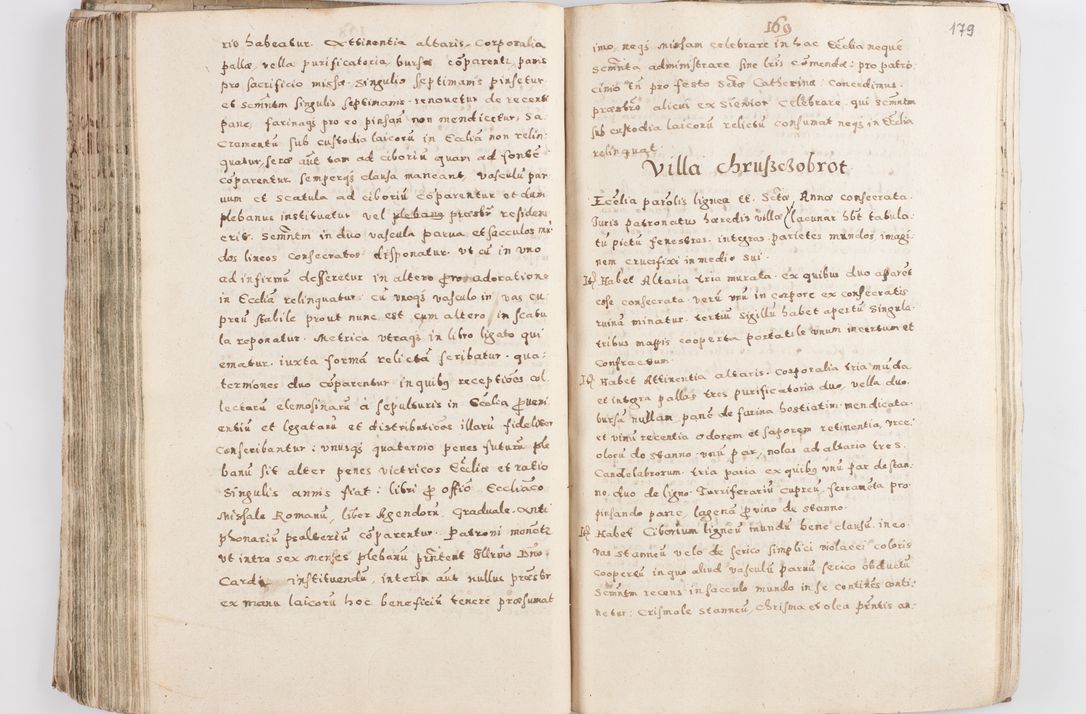 rio habeatur. Attinentia altaris. Corporalia
pallæ, vella purificatoria bursæ cōparenť, panis
pro sacrificio missæ. Singulis septimanis pinsetur
et Scmñtm singulis septimanis. renovetur de recenti
pane, farinaqȝ pro eo pinsanđ non mendicetur, Sa-
cramentū sub custodia laicorū in Ecclia non relin-
quatur, seræ aūt tam ad ciboriū quam ad fontē
cōparentur semperqȝ clausa maneant, vasculū par
uum et Scatula ad ciboriū cōparentur et dum
plebanus instituetur vel plebanus præsbř residens
erit. Semñtm in duo vascula parua et sacculos mū
dos lineos consecratos disponatur. vt cū in vno
ad infirmū defferetur in altero pro adoratione
in Ecclia relinquatur. cū vnoqȝ vasculo in vas cu
preū stabile prout nunc est cum altero in scatu
la reponatur. Metrica vtraqȝ in libro ligato qui
ematur. iuxta formā relictā scribatur. qua:
terniones duo cōparentur in quibȝ receptiões col
lectarū elemosinarū à sepulturis in Ecclia proveni
entiū et legatarū et distributiões illarū fideliter
conscribantur: vnusqȝ quaternio penes futurū ple
banū sit alter penes victricos Eccliæ et ratio
Singulis annis fiat: libri pro offiõ Eccliaco
Missale Romanū, liber Agendorū, Graduale. Anti
phonariū psalteriū cōparentur. Patroni monētur
vt intra sex menses plebanū pñtent Illrmo Dño
Cardi instituendū, interim aūt nullus præsbr
ex manu laicorū hoc beneficiū tenere præsumat
169
179
imo, neqȝ missam celebrare in hac Ecclia neque
Scmñta administrare sine lřis cōmendæ: pro patro-
cinio tñ pro festo Sctæ Catherinæ: Concedimus
præsbřo alicui ex Sienior Celebrare, qui Scmñtm
sub custodia laicorū relictū consumat neqȝ in Ecclia
relinquat.
Villa Chruszczobrot
Ecclia parolis lignea tt. Sctæ Annæ consecrata.
Iuris patronatus hæredis villæ lacunar hēt tabula-
tū pictū fenestras. integras parietes mundos, imagi
nem crucifixi in medio sui.
It Habet Altaria tria murata. ex quibus duo appařt
eōse consecrata. verū vnū in corpore ex consecratis
ruinā minatur. tertiū sigillū habet apertū Singula.
tribus mappis cooperta portatile vnum incertum et
confractum.
It Habet Attinentia altaris. Corporalia tria munda
et integra pallas tres purificatoria duo, vella duo.
bursā nullam panē de farina hostiatim mendicata.
et vinū recentia odorem et saporem retinentia, vrce:
olorū do stanno. vnū par, nolas ad altaria tres
Candelabrorum. tria paria ex quibȝ vnū par de stan:
no. duo de ligno. Turriferariū cupreū. ferramēta pro
pinsando pane, lagenā pro vino de stanno.
It Habet Ciborium ligneū mundū bene clausū. in eo
vas stanneū velo de serico simplici violacei coloris
coopertū in quo aliud vasculū paruū serico obductū
Scmñtm recens in sacculo mundo in se continēs conti:
netur: Crismale stanneū, Chrisma et olea pñtis an: